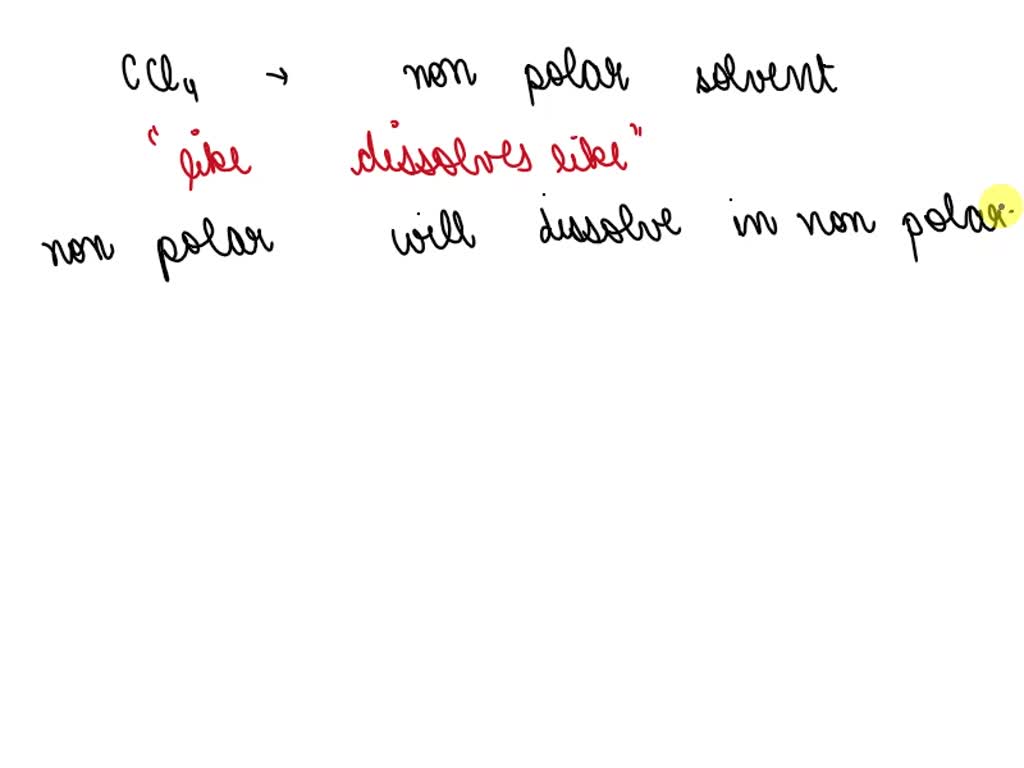 CCl₄ → non polar solvent
"like dissolves like"
non polar will dissolve in non polar